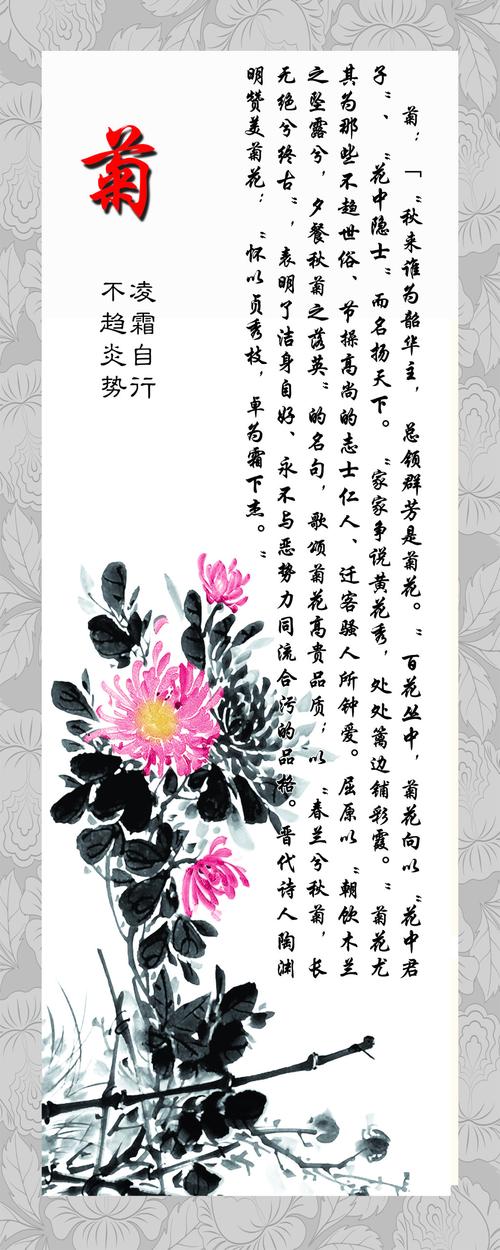 菊
凌霜自行
不趋炎势
菊:「“秋来谁为韶华主,总领群芳是菊花。”百花丛中,菊花向以“花中君
子”、“花中隐士”而名扬天下。“家家争说黄花秀,处处篱边铺彩霞。”菊花尤
其为那些不趋世俗、节操高尚的志士仁人、迁客骚人所钟爱。屈原以“朝饮木兰
之坠露兮,夕餐秋菊之落英”的名句,歌颂菊花高贵品质;以“春兰兮秋菊,长
无绝兮终古”,表明了洁身自好、永不与恶势力同流合污的品格。晋代诗人陶渊
明赞美菊花:“怀以贞秀枝,卓为霜下杰。”